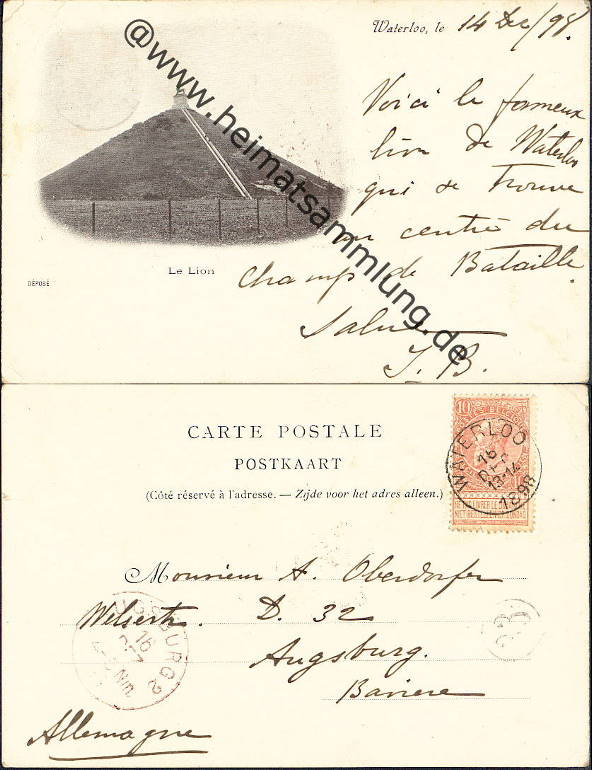 Waterloo, le 14 Dec/98.
Voici le fameux
lion de Waterloo
qui se trouve
au centre du
Champ de Bataille.
Salut
J. B.
Le Lion
DÉPOSÉ
@www.heimatsammlung.de
CARTE POSTALE
POSTKAART
(Côté réservé à l'adresse. — Zijde voor het adres alleen.)
10
WATERLOO
16
DEC
13-14
1898
Monsieur A. Oberdorfer
Welserstr. D. 32
Augsburg.
Baviere
Allemagne
AUGSBURG 2
16
DEZ
Nm.